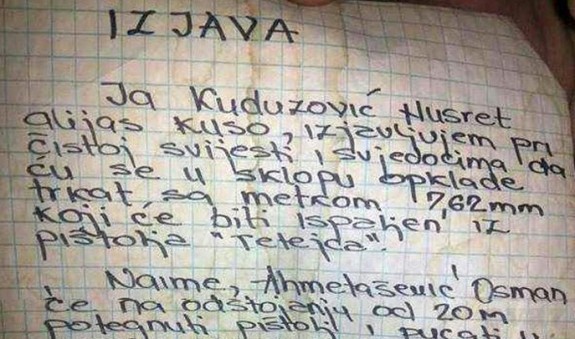 IZJAVA
Ja Kuduzović Husret
alijas Kuso, izjavljujem pri
čistoj svijesti i svjedocima da
ću se u sklopu opklade
trkat, sa metkom 7,62mm
koji će biti ispaljen iz
pištolja "Tetejca".
Naime, Ahmetašević Osman
će na odstojanju od 20m
potegnuti pištolj i pucati u